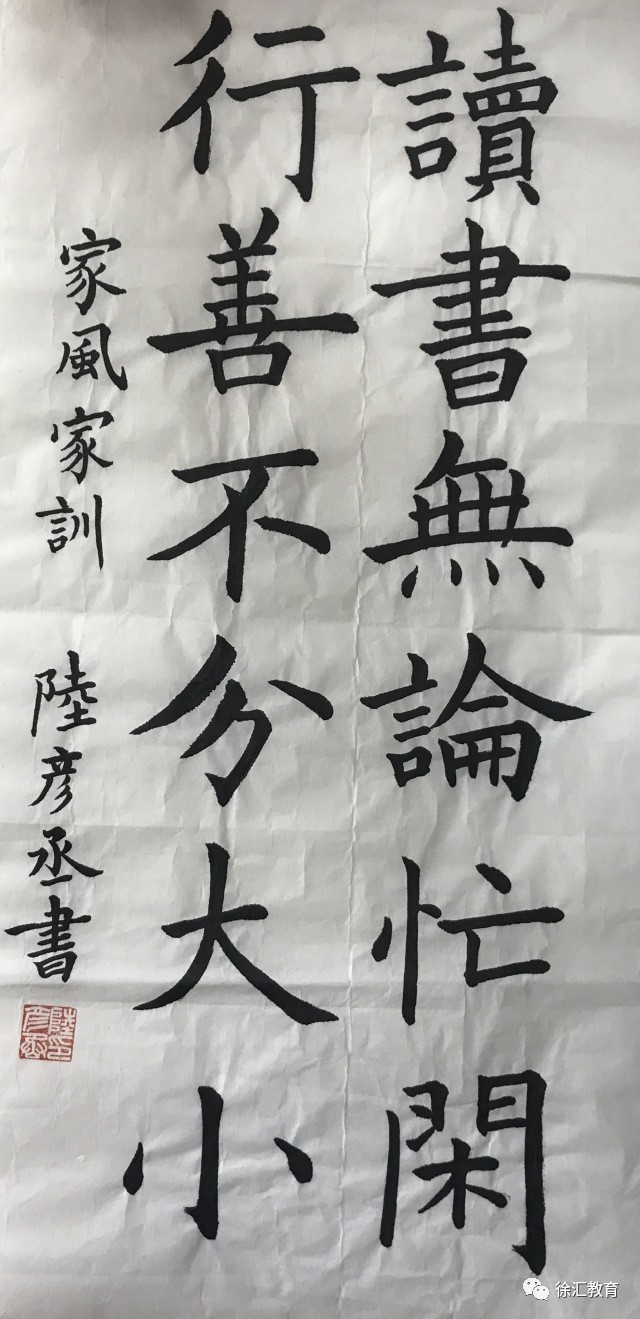 讀書無論忙閑
行善不分大小
家風家訓 陸彦丞書
徐汇教育